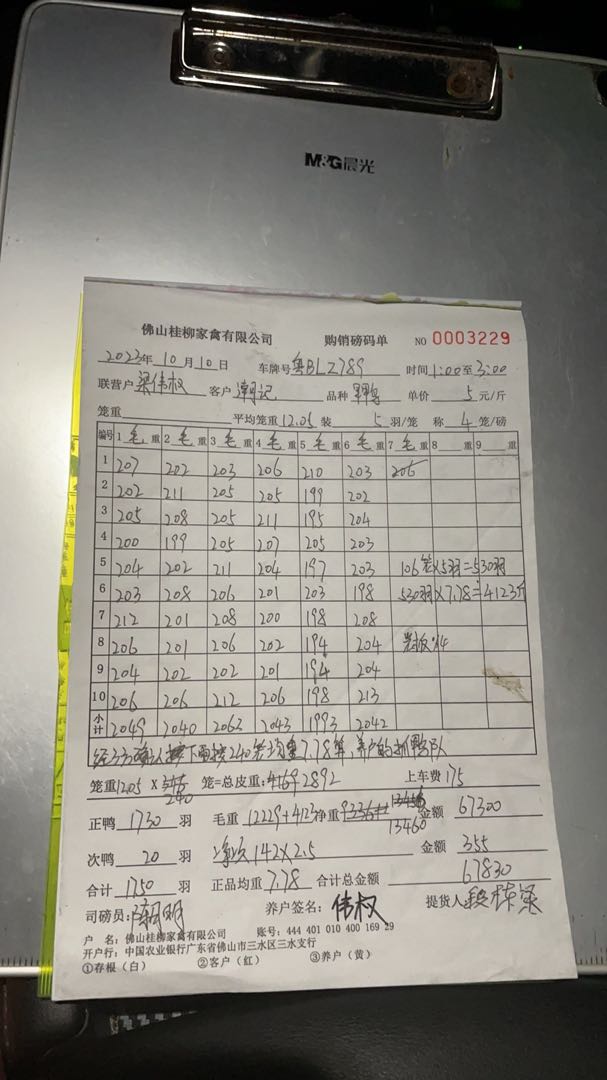 M&G晨光
佛山桂柳家禽有限公司 购销磅码单 NO 0003229
2023年10月10日 车牌号 粤BLZ789 时间1:00至3:00
联营户 梁伟权 客户 潮记 品种 单价 5 元/斤
笼重 平均笼重12.05 装 5 羽/笼 称 4 笼/磅
编号 1 毛 重 2 毛 重 3 毛 重 4 毛 重 5 毛 重 6 毛 重 7 毛 重 8 重 9 重
1 207 202 203 206 210 203 206
2 202 211 205 205 199 202
3 205 208 205 211 195 204
4 200 199 205 207 205 203
5 204 202 211 204 197 203 106笼×5羽=530羽
6 203 208 206 201 203 198 530羽×7.78=4123斤
7 212 201 208 200 198 208
8 206 201 206 202 194 204
9 204 202 202 201 194 204
10 206 206 212 206 198 213
小计 2049 2040 2063 2043 1993 2042
经三方确认 下面按240笼均重7.78算,养户的抓鸭队
笼重12.05 × 240 笼=总皮重:4169 2892 上车费 175
正鸭 1730 羽 毛重 12229+4123 净重 13460 金额 67300
次鸭 20 羽 净次142×2.5 金额 355
合计 1750 羽 正品均重 7.78 合计总金额 67830
司磅员: 养户签名: 伟权 提货人
户 名:佛山桂柳家禽有限公司 账号:444 401 010 400 169 29
开户行:中国农业银行广东省佛山市三水区三水支行
①存根(白) ②客户(红) ③养户(黄)